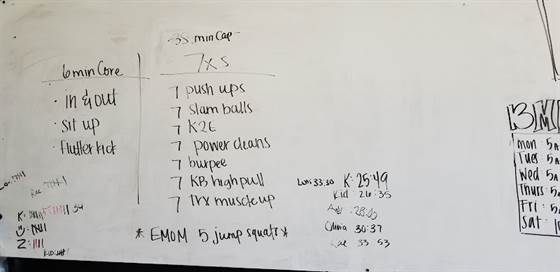 6 min Core
• in & out
• sit up
• flutter kick
35 min Cap -
7 x s
7 push ups
7 slam balls
7 K2E
7 power cleans
7 burpee
7 KB high pull
7 trx muscle up
* EMOM 5 jump squats *
33:30
K: 25:49
26:35
30:37
33:53
K:
34
Z:
BM
Mon 5A
Tues: 5A
Wed: 5A
Thurs 5A
Fri: 5A
Sat: